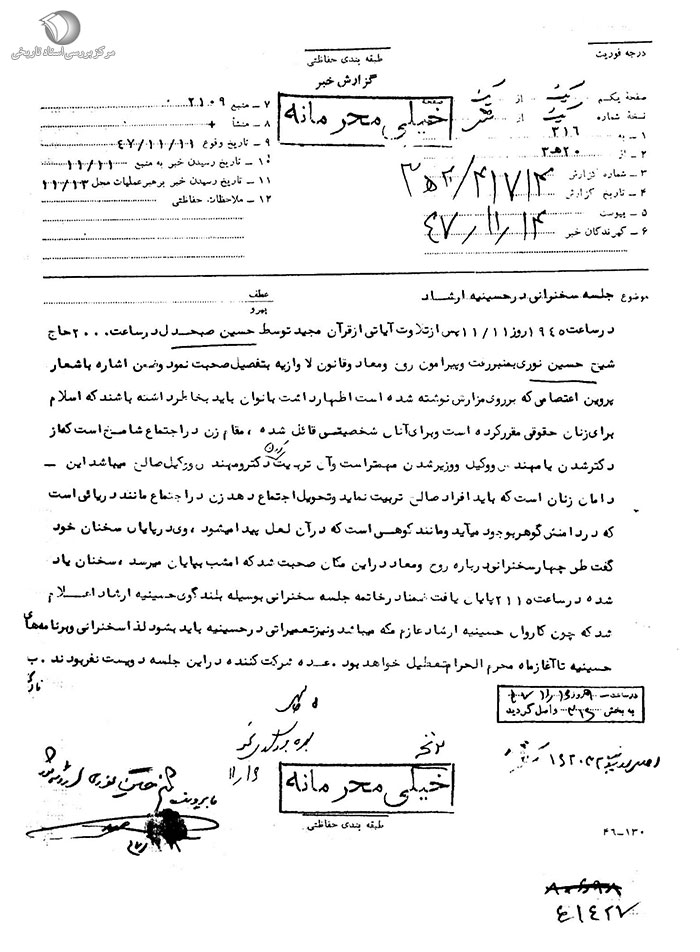 مرکز بررسی اسناد تاریخی
درجه فوریت
طبقه بندی حفاظتی
گزارش خبر
خیلی محرمانه
صفحه یکم از
نسخه شماره از
۱ ـ به ۳۱۶
۲ ـ از ۲۰هـ۳
۳ ـ شماره گزارش
۴ ـ تاریخ گزارش ۴۷/۱۱/۱۴
۵ ـ پیوست
۶ ـ گیرندگان خبر
۷ ـ منبع ۲۱۰۹
۸ ـ منشأ +
۹ ـ تاریخ وقوع ۴۷/۱۱/۱۱
۱۰ ـ تاریخ رسیدن خبر به منبع ۱۱/۱۱
۱۱ ـ تاریخ رسیدن خبر برهبر عملیات محل ۱۱/۱۳
۱۲ ـ ملاحظات حفاظتی
موضوع جلسه سخنرانی در حسینیه ارشاد
عطف
پیرو
در ساعت ۱۹۴۵ روز ۱۱/۱۱ پس از تلاوت آیاتی از قرآن مجید توسط حسین صبحدل در ساعت ۲۰۰۰ حاج
شیخ حسین نوری بمنبر رفت و پیرامون روح و معاد و قانون لاوازیه بتفصیل صحبت نمود و ضمن اشاره باشعار
پروین اعتصامی که بر روی مزارش نوشته شده است اظهار داشت بانوان باید بخاطر داشته باشند که اسلام
برای زنان حقوقی مقرر کرده است و برای آنان شخصیتی قائل شده ، مقام زن در اجتماع شامخ است که از
دکتر شدن یا مهندس و وکیل و وزیر شدن مهمتر است و آن تربیت کردن دکتر و مهندس و وکیل صالح میباشد این ـ
دامان زنان است که باید افراد صالح تربیت نماید و تحویل اجتماع دهد زن در اجتماع مانند دریائی است
که در دامنش گوهر بوجود میآید و مانند کوهی است که در آن لعل پیدا میشود ، وی در پایان سخنان خود
گفت طی چهار سخنرانی درباره روح و معاد در این مکان صحبت شد که امشب بپایان میرسد ، سخنان یاد
شده در ساعت ۲۱۱۵ پایان یافت ضمنا در خاتمه جلسه سخنرانی بوسیله بلندگوی حسینیه ارشاد اعلام
شد که چون کاروان حسینیه ارشاد عازم مکه میباشد و نیز تعمیراتی در حسینیه باید بشود لذا سخنرانی و برنامه‌های
حسینیه تا آغاز ماه محرم الحرام تعطیل خواهد بود . عده شرکت کننده در این جلسه دویست نفر بودند . ب
در ساعت روز
به بخش ۳۱۶ واصل گردید
خیلی محرمانه
طبقه بندی حفاظتی
۴۶-۱۳۰